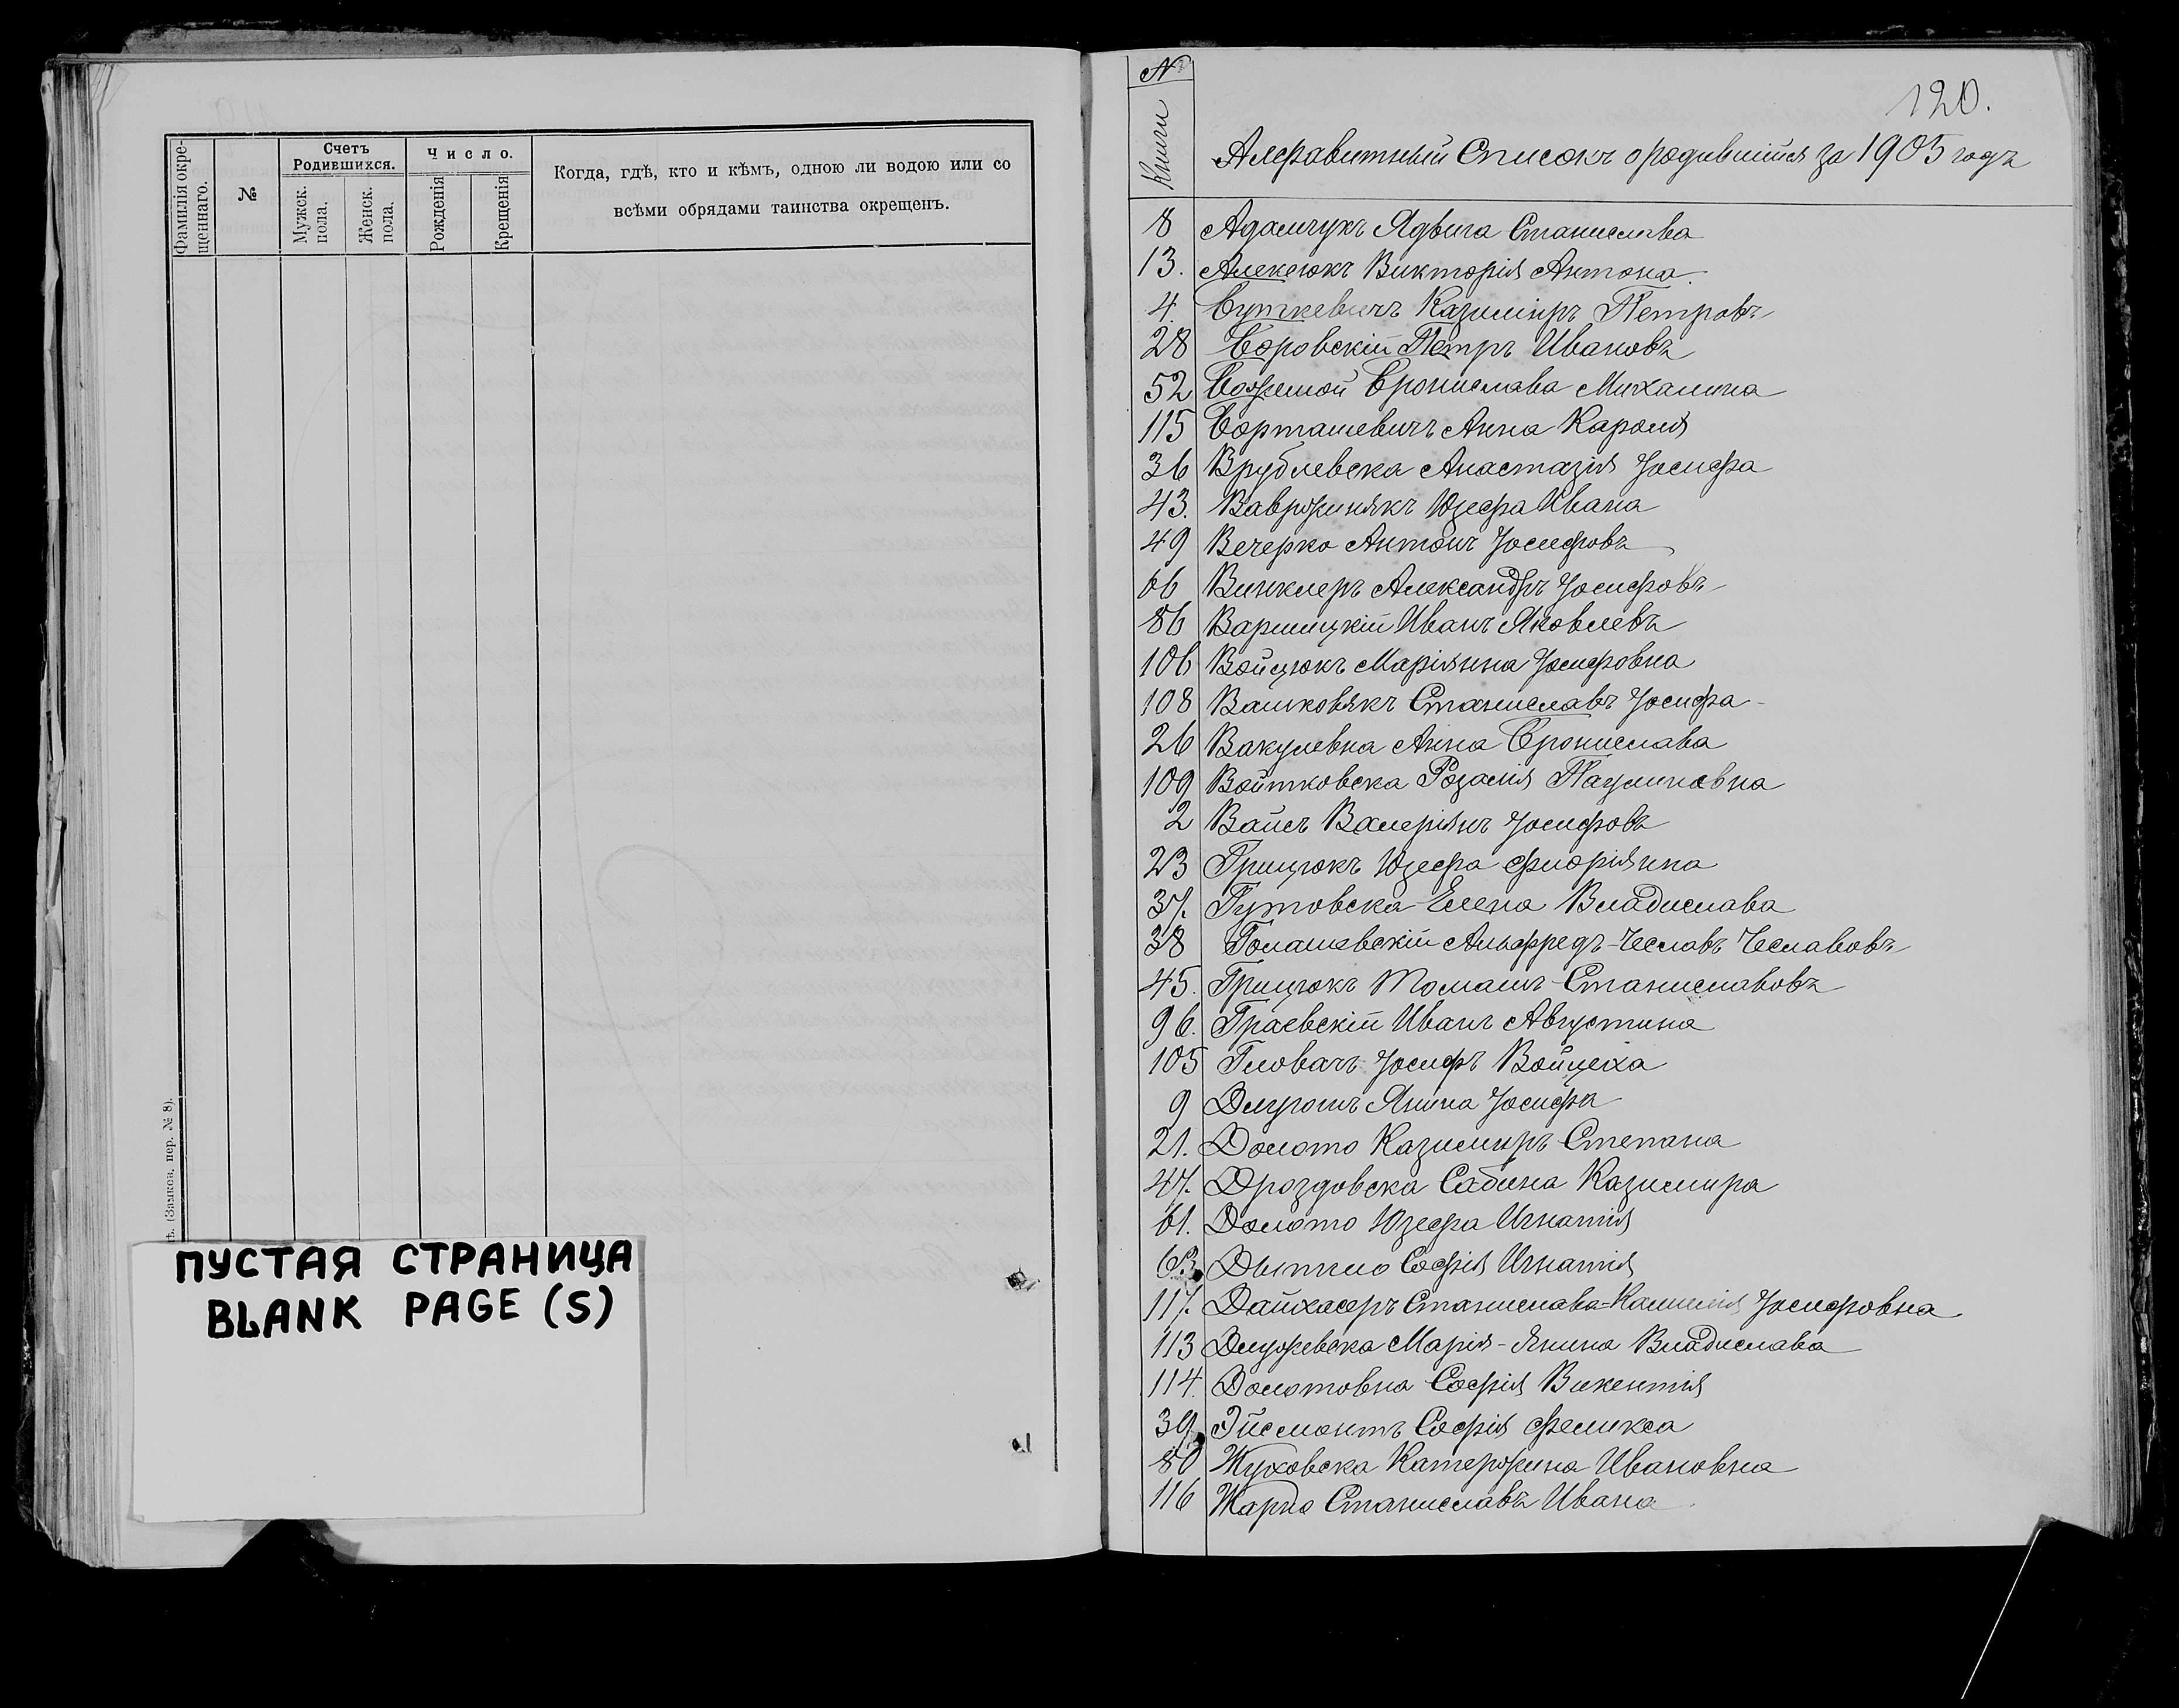 Фамилія окре-
щеннаго.
№
Счетъ
Родившихся.
Мужск.
пола.
Женск.
пола.
Число.
Рожденія
Крещенія
Когда, гдѣ, кто и кѣмъ, одною ли водою или со
всѣми обрядами таинства окрещенъ.
пер. № 8).
ПУСТАЯ СТРАНИЦА
BLANK PAGE (S)
120.
№
Книги
Алфавитный Списокъ о родившійся за 1905 годъ
8 Адамчукъ Ядвига Станислава
13. Алексюкъ Викторія Антона
4. Буткевичъ Казиміръ Петровъ
28 Боровскій Петръ Ивановъ
52 Бронислава Михалина
115 Борташевичъ Анна Кароля
36 Врублевска Анастазія Іосифа
43. Ваврженякъ Юзефа Ивана
49 Вечерко Антонъ Іосифовъ
66 Винклеръ Александръ Іосифовъ
86 Варшицкій Иванъ Яковлевъ
106 Войцюкъ Маріянна Іосифовна
108 Вашковякъ Станиславъ Іосифа
26 Вакулевна Анна Бронислава
109 Войтковска Розалія Паулиновна
2 Вайсъ Валеріянъ Іосифовъ
23 Грицюкъ Юзефа Флоріяна
37. Гутовска Елена Владислава
38 Голашевскій Альфредъ-Чеславъ Чеславовъ
45. Грицюкъ Томашъ Станиславовъ
96. Граевскій Иванъ Августина
105 Гловачъ Іосифъ Войцеха
9 Янина Іосифа
21. Долото Казимиръ Степана
47. Дроздовска Сабина Казимира
61. Долото Юзефа Игнатія
63. Софія Игнатія
117. Станислава-Камилія Іосифовна
113 Марія-Янина Владислава
114. Долотовна Софія Викентія
39. Эйсмонтъ Софія Феликса
80 Жуховска Катержина Ивановна
116 Жарно Станиславъ Ивана